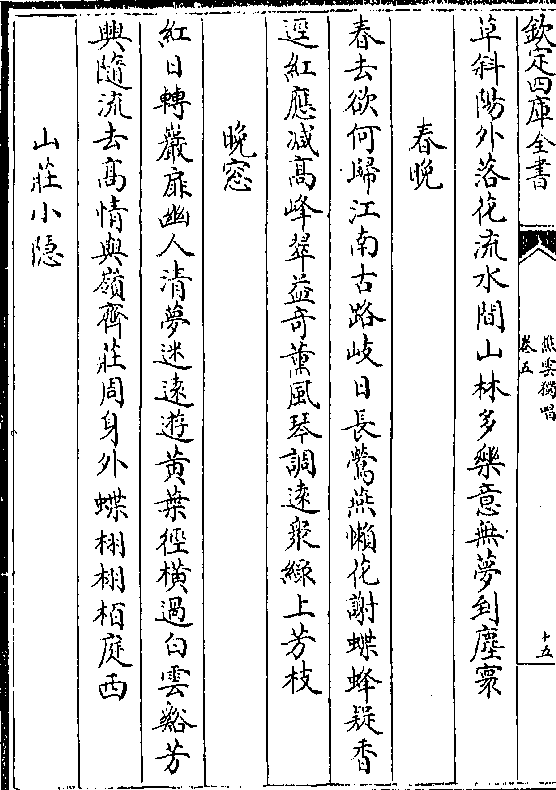 欽定四庫全書
無雲獨唱
卷五
十五
草斜陽外落花流水間山林多樂意無夢到塵寰
春晚
春去欲何歸江南古路岐日長鶯燕懶花謝蝶蜂疑香
逕紅應减高峰翠益奇薰風琴調遠衆綠上芳枝
晚窓
紅日轉巖扉幽人清夢迷遠遊黄葉徑横過白雲谿芳
興隨流去高情與嶺齊莊周身外蝶栩栩栢庭西
山莊小隐